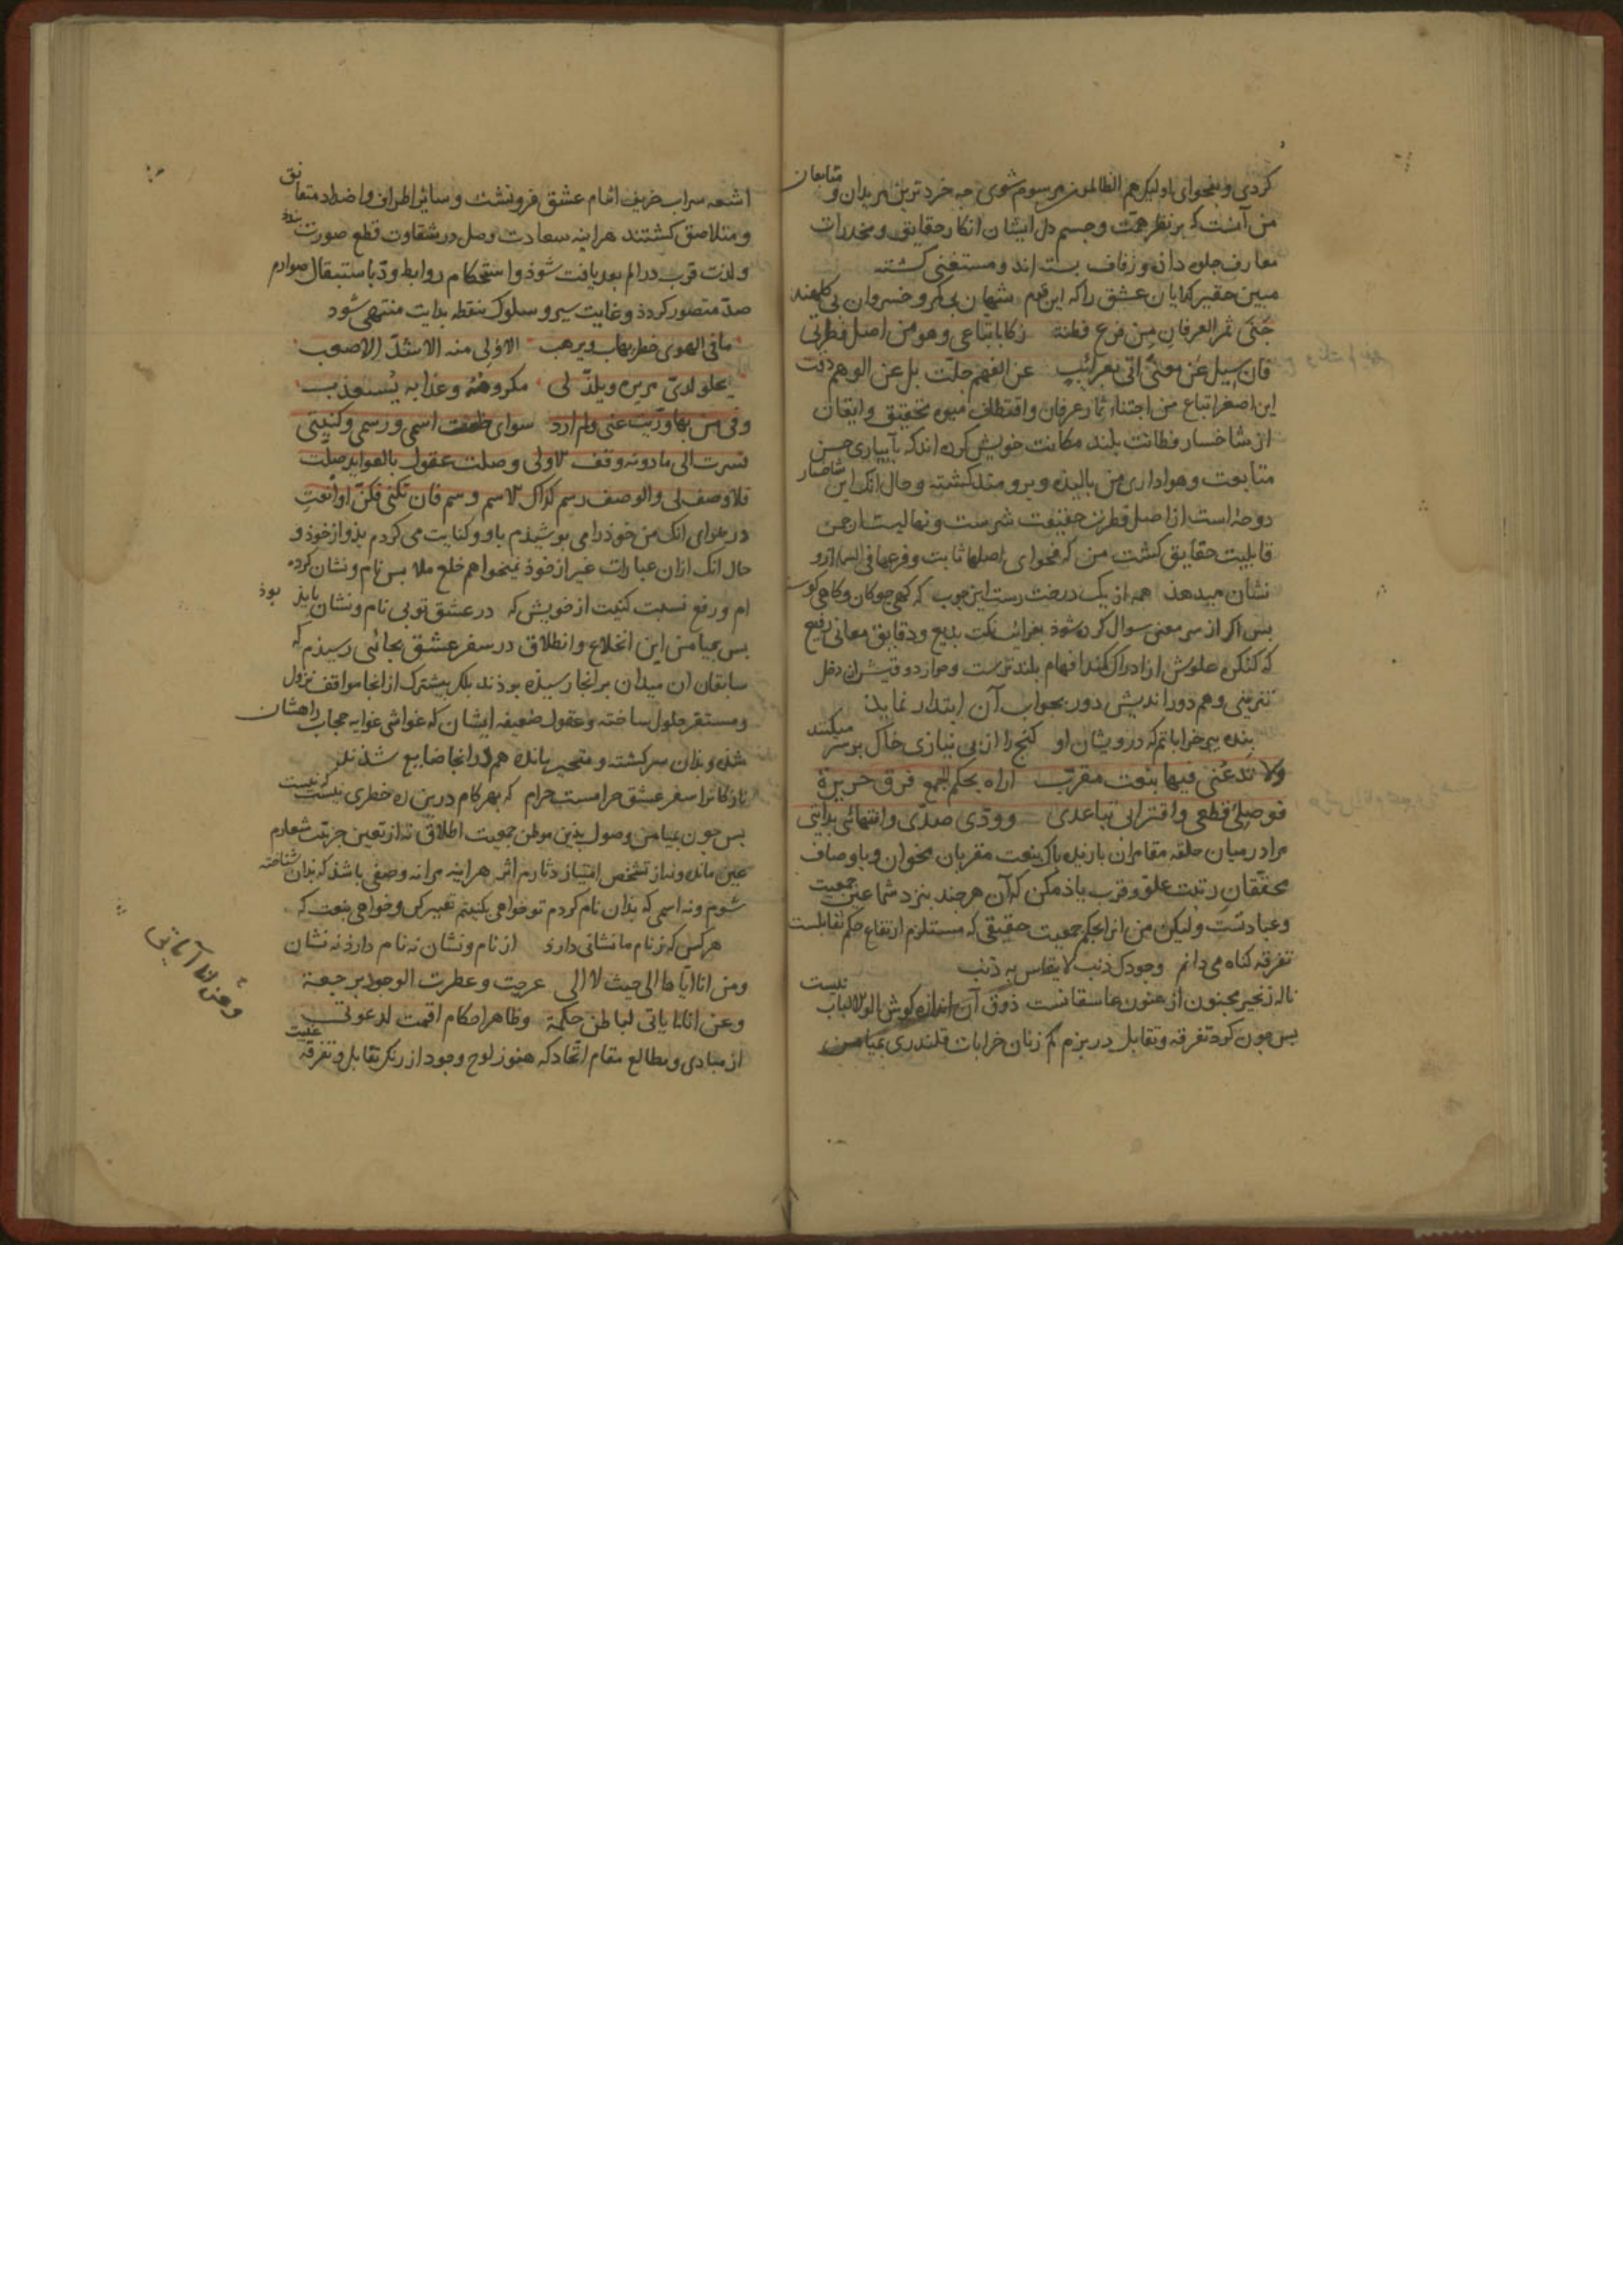 کردی و بفحوای اولئک هم الظالمون مرسوم شوی چه خردترین مریدان و متابعان
من آنست که بر نظر همت و چشم دل ایشان ابکار حقایق و مخدرات
معارف جلوه دان و زفاف بسته اند و مستغنی کشته
مبین حقیر کدایان عشق را که این قوم شهان بی کمر و خسروان بی کلهند
جَنَی ثمر العرفان مِن فرع فطنة زکا باتباعی وهو من اصل فطرتی
فان سیل عن معنی اتی بغرائب عن الفهم جلّت بل عن الوهم دقت
این اصغر اتباع من اجتناء ثمار عرفان و اقتطاف میوه تحقیق و ایقان
از شاخسار فطانت بلند مکانت خویش کرده اند که بآبیاری حسن
متابعت و هواداری من بالیده و برومند کشته و حال انک این شاخسار
دوحه است از اصل فطرت حقیقت شرست و نهالیست از چمن
قابلیت حقایق کشت من که فحوای اصلها ثابت و فرعها فی السما ازو
نشان میدهد همه از یک درخت رست این چوب که کهی چوکان و کاهی کوست
پس اکر از سر معنی سوال کرده شود بغرائب نکت بدیع و دقایق معانی رفیع
که کنکره علوش از ادراک کمند افهام بلندترست و
بنده پیر خراباتم که درویشان او کنج را از بی نیازی خاک بر سر میکنند
ولا تدعنی فیها بنعت مقرب اراه بحکم الجمع فرق جریرة
فوصلی قطعی واقترابی تباعدی وودّی صدّی وانتهائی بدایتی
مرا در میان حلقه مقامران بازنده پاک بنعت مقربان مخوان و باوصاف
محققان رتبت علو و قرب یاد مکن که آن هر چند بنزد شما عین جمعیت
و عبادتست ولیکن من انرا بحکم جمعیت حقیقی که مستلزم ارتفاع حکم تقابلست
تفرقه کناه می دانم وجودک ذنب لا یقاس به ذنب
ناله زنجیر مجنون ارغنون عاشقانست ذوق آن اندازه کوش اولوالالباب نیست
پس چون کرد تفرقه و تقابل در بزم کم زنان خرابات قلندری بمیامن
اشعه سراب عشق فرونشست و سائر اطراف و اضداد متعانق
و متلاصق کشتند هراینه سعادت وصل در شقاوت قطع صورت بندد
و لذت قرب در الم بعد یافت شود و استحکام روابط ودّ باستقبال صوارم
صدّ متصور کردد و غایت سیر و سلوک بنقطه بدایت منتهی شود
ما فی الهوی خطر یهاب ویرهب الا ولی منه الاشدّ الاصعب
یحلو لدیّ مریره ویلذّ لی مکروهه وعذابه یستعذب
وفی من بها ورّیت عنی ولم ارد سوای خلعت اسمی ورسمی وکنیتی
فسرت الی ما دونه وقف الاولی وضلت عقول بالعوائد ضلّت
فلا وصف لی والوصف رسم کذاک الاسم وسم فان تکنی فکنّ او انعت
در هوای انک من خود را می پوشیدم باو و کنایت می کردم بدو از خود و
حال انک ازان عبارات غیر از خود نمیخواهم خلع ملابس نام و نشان کرده
ام و رفع نسبت کنیت از خویش که در عشق تو بی نام و نشان باید بود
پس بمیامن این انخلاع و انطلاق در سفر عشق بجائی رسیدم که
سابقان ان میدان بر انجا رسیده بودند بلکه پیشترک از انجا مواقف نزول
و مستقر حلول ساخته و عقول ضعیفه ایشان که غواشی غوایه حجاب راهشان
شده و بدان سرکشته و متحیر مانده هم در انجا ضایع شدند
نازکانرا سفر عشق حرامست حرام که بهر کام درین ره خطری نیست که نیست
پس چون بمیامن وصول بدین موطن جمعیت اطلاق نه از تعین جزئیت شعارم
عین مانده و نه از تشخص امتیاز دثارم اثر هراینه مرا نه وصفی باشد که بدان شناخته
شوم و نه اسمی که بدان نام کردم تو خواهی بکنیتم تعبیر کن و خواهی بنعت که
هر کس که ز نام ما نشانی دارد از نام و نشان نه نام دارد نه نشان
ومن انا ایاها الی حیث لا الی عرجت وعطرت الوجود برجعة
وعن انا ایای لباطن حکمة وظاهر احکام اقیمت لدعوتی
از مبادی و مطالع مقام اتحاد که هنوز لوح وجود از رنک تقابل و تفرقه غیبت
وعن انا ایای